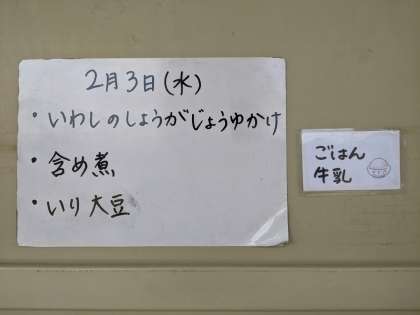 2月3日(水)
・いわしのしょうがじょうゆかけ
・含め煮
・いり大豆
ごはん
牛乳